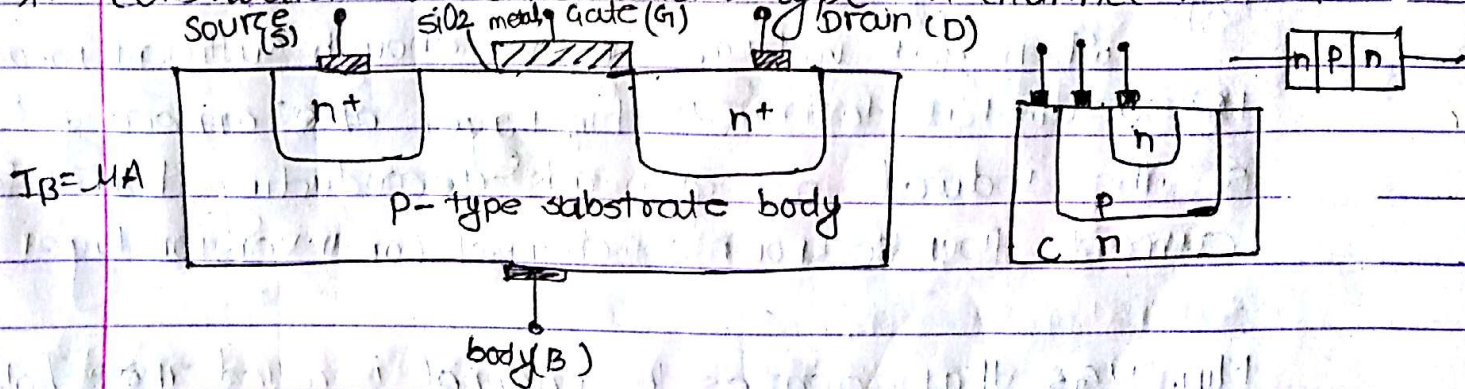 Source (S) SiO2 metal Gate (G) Drain (D)
n+ n+ n p n
n
IB= μA
P- type substrate body p
C n
body(B)